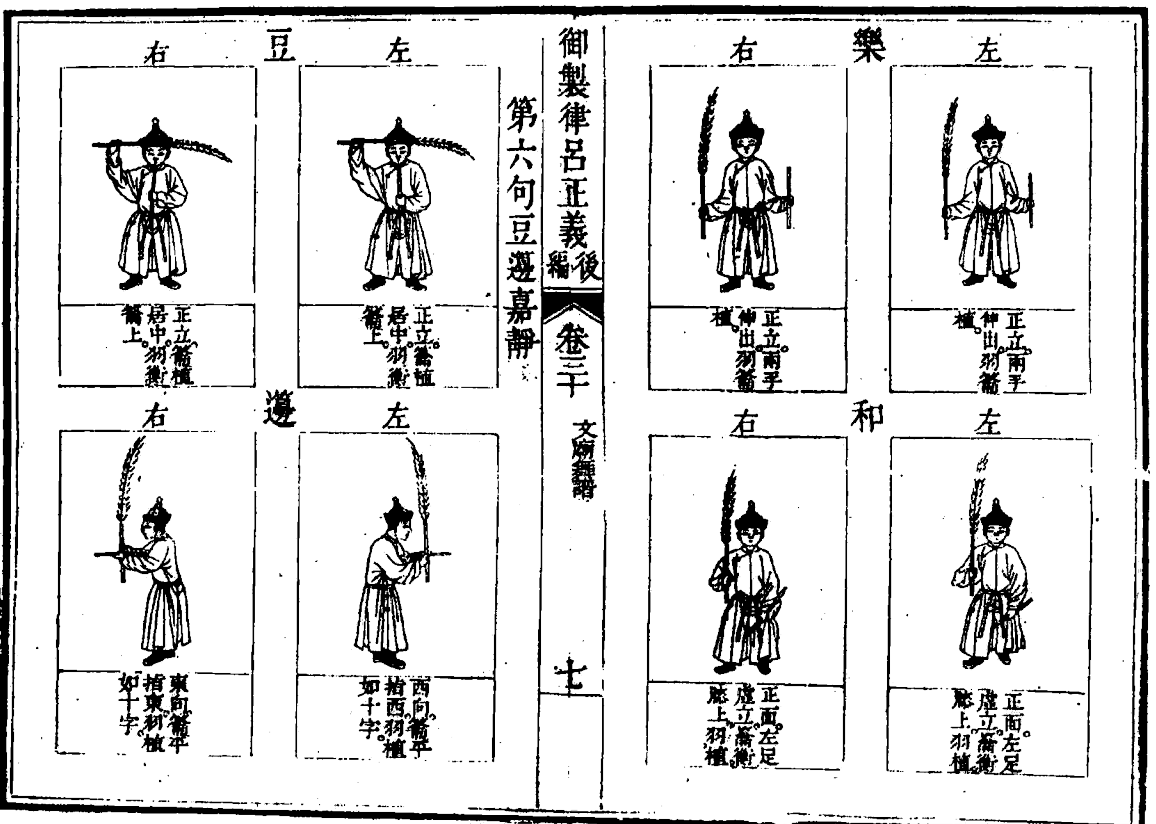 樂
左
正立。兩手
伸出。羽籥
植。
右
正立。兩手
伸出。羽籥
植。
和
左
正面。左足
虛立。籥衡
膝上。羽植。
右
正面。左足
虛立。籥衡
膝上。羽植。
御製律呂正義後編
卷三十
文廟舞譜
七
第六句豆籩嘉靜
豆
左
正立。籥植
居中。羽衡
籥上。
右
正立。籥植
居中。羽衡
籥上。
籩
左
西向。籥平
指西。羽植
如十字。
右
東向。籥平
指東。羽植
如十字。